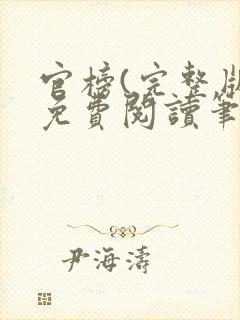 官榜(完整版
免費閱讀筆
尹海濤